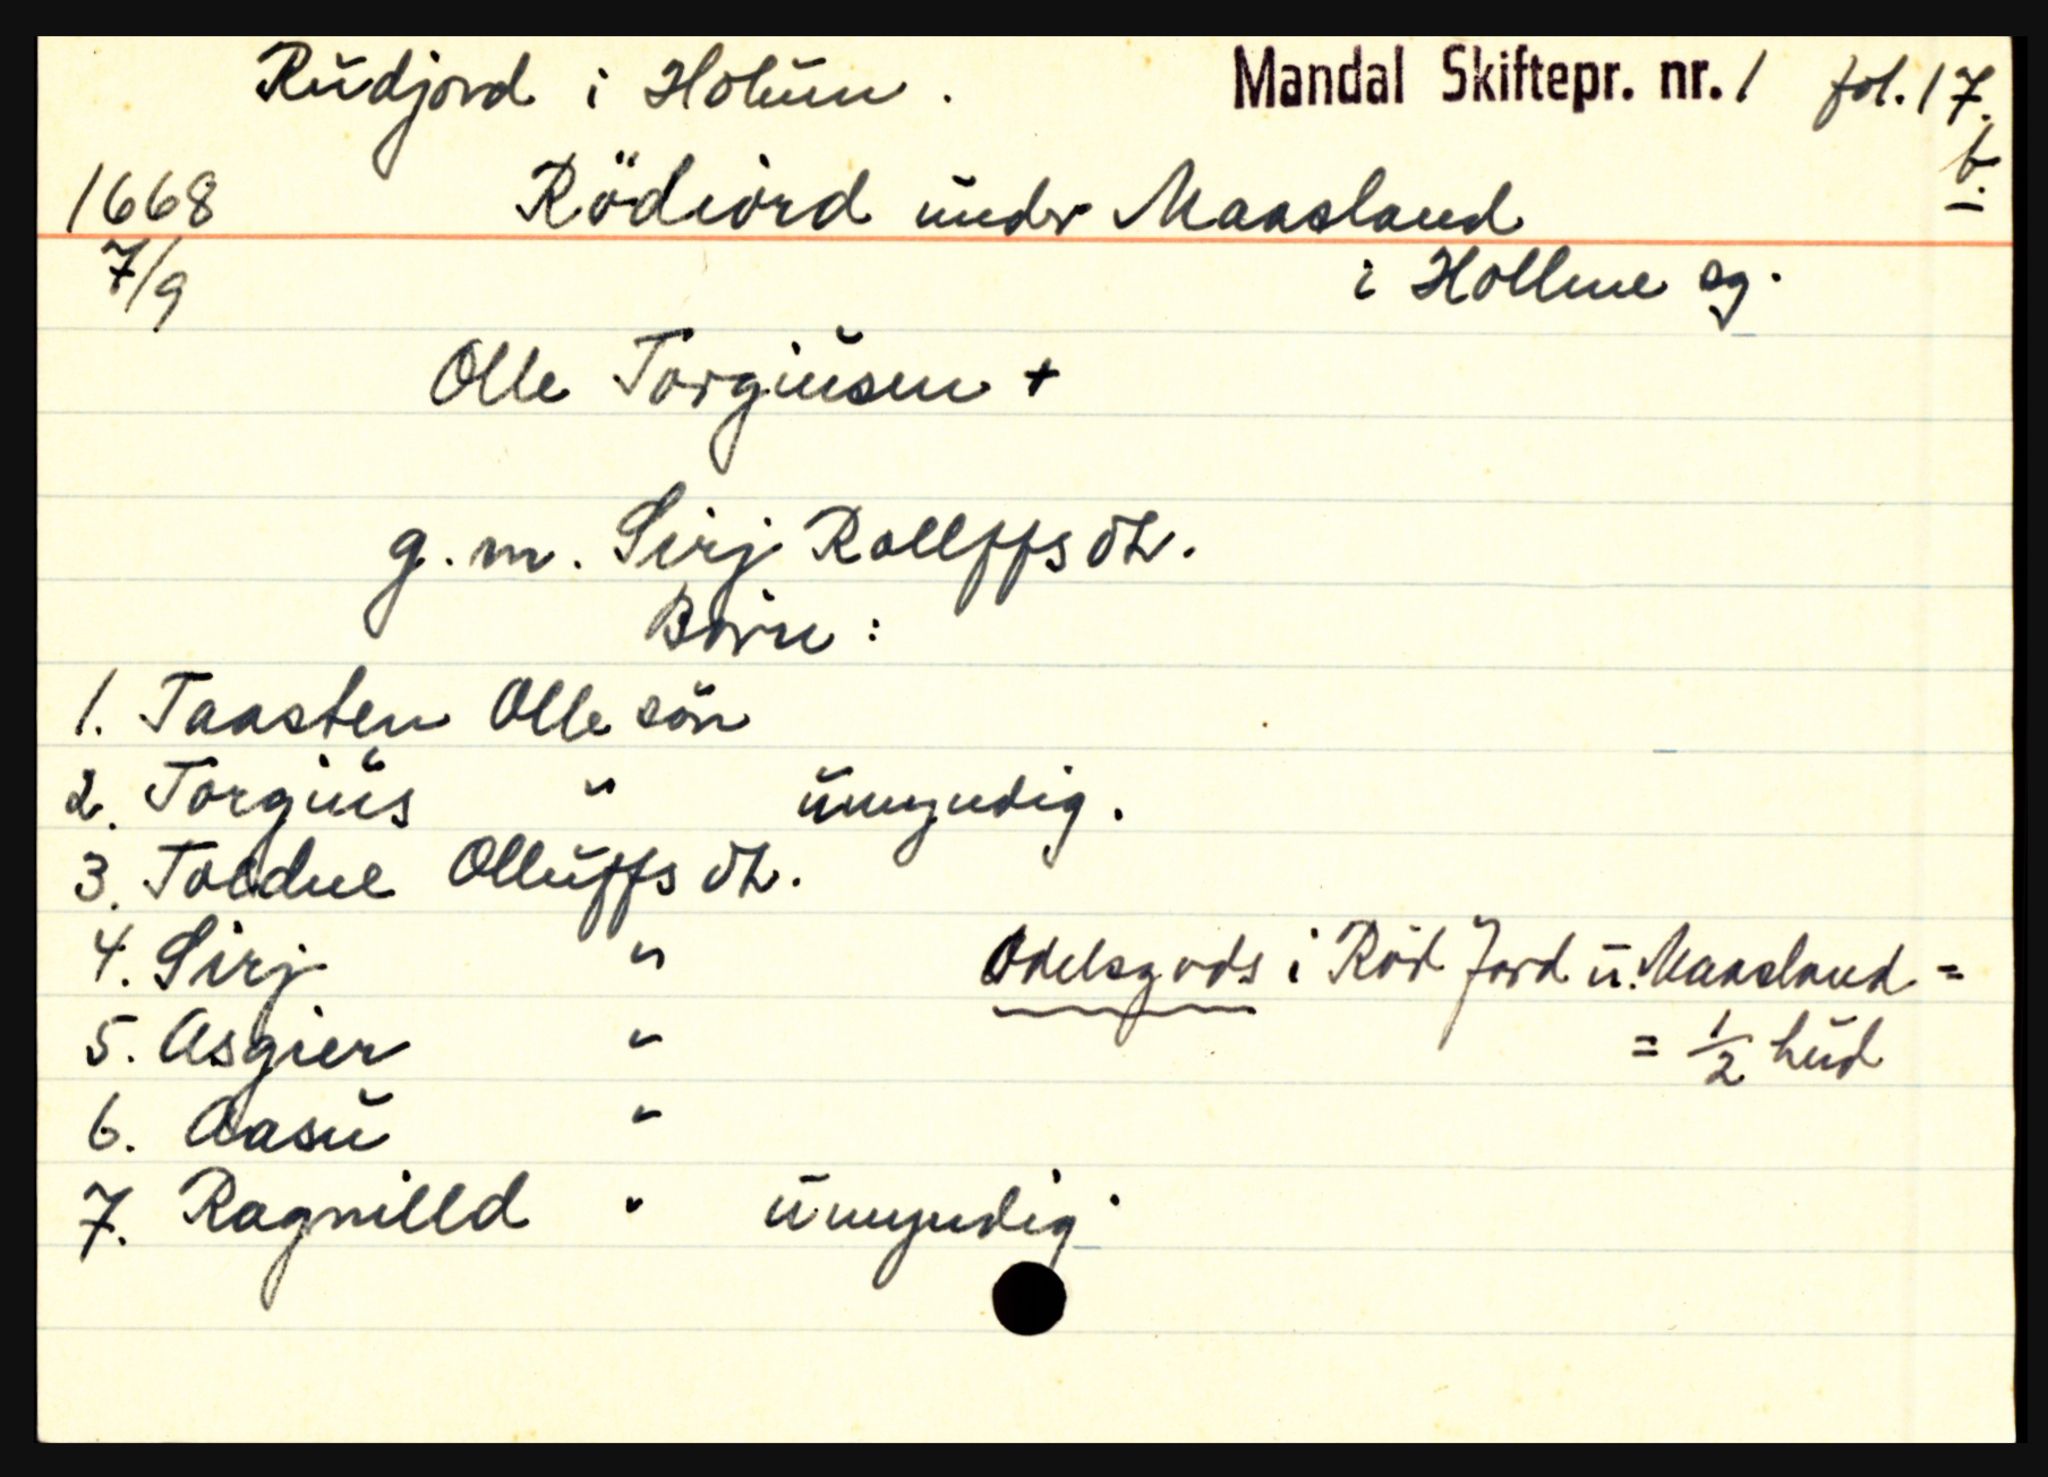 Rudjord i Holum. Mandal Skiftepr. nr. 1 fol. 17.
b.
1668 Rödiord under Maasland
7/9 i Hollme sg.
Olle Torgiusen +
g. m. Sirj Rollffs dtr.
Børn:
1. Taasten Olle sön
2. Torgius " umyndig.
3. Toedne Olluffs dtr.
4. Sirj " Odelsgods i Röd Jord u. Maasland =
5. Asgier " = 1/2 hud
6. Aasu "
7. Ragnilld " umyndig.